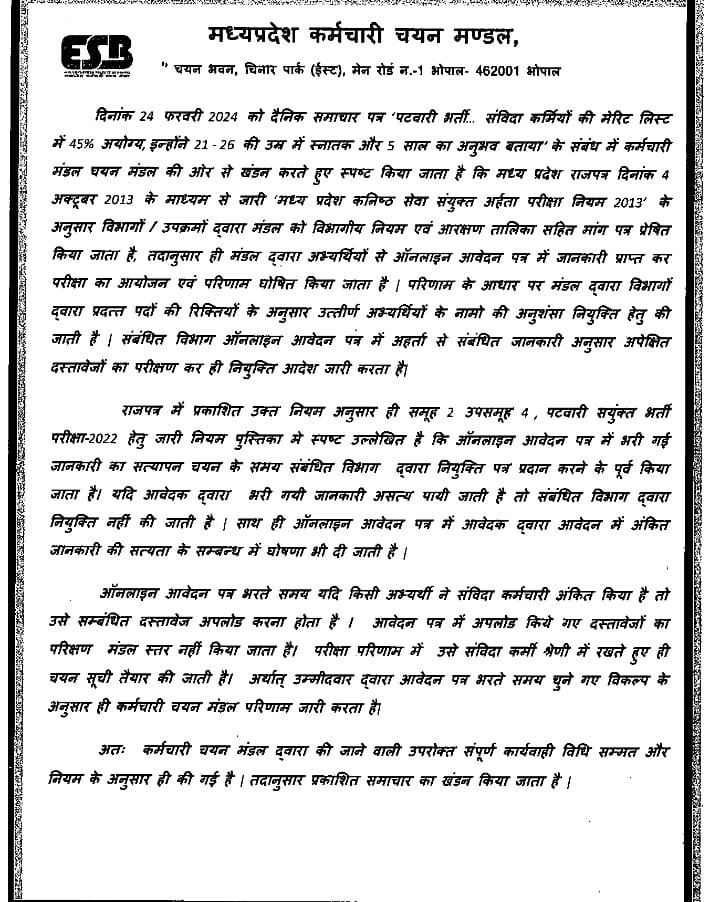 ESB
मध्यप्रदेश कर्मचारी चयन मण्डल,
" चयन भवन, चिनार पार्क (ईस्ट), मेन रोडं न.-1 भोपाल- 462001 भोपाल
दिनांक 24 फरवरी 2024 को दैनिक समाचार पत्र 'पटवारी भर्ती... संविदा कर्मियों की मेरिट लिस्ट
में 45% अयोग्य, इन्होंने 21-26 की उम्र में स्नातक और 5 साल का अनुभव बताया' के संबंध में कर्मचारी
मंडल चयन मंडल की ओर से खंडन करते हुए स्पष्ट किया जाता है कि मध्य प्रदेश राजपत्र दिनांक 4
अक्टूबर 2013 के माध्यम से जारी 'मध्य प्रदेश कनिष्ठ सेवा संयुक्त अर्हता परीक्षा नियम 2013' के
अनुसार विभागों / उपक्रमों द्वारा मंडल को विभागीय नियम एवं आरक्षण तालिका सहित मांग पत्र प्रेषित
किया जाता है, तदानुसार ही मंडल द्वारा अभ्यर्थियों से ऑनलाइन आवेदन पत्र में जानकारी प्राप्त कर
परीक्षा का आयोजन एवं परिणाम घोषित किया जाता है | परिणाम के आधार पर मंडल द्वारा विभागों
द्वारा प्रदत्त पदों की रिक्तियों के अनुसार उत्तीर्ण अभ्यर्थियों के नामो की अनुशंसा नियुक्ति हेतु की
जाती है | संबंधित विभाग ऑनलाइन आवेदन पत्र में अहर्ता से संबंधित जानकारी अनुसार अपेक्षित
दस्तावेजों का परीक्षण कर ही नियुक्ति आदेश जारी करता है|
राजपत्र में प्रकाशित उक्त नियम अनुसार ही समूह 2 उपसमूह 4 , पटवारी सयुंक्त भर्ती
परीक्षा-2022 हेतु जारी नियम पुस्तिका मे स्पष्ट उल्लेखित है कि ऑनलाइन आवेदन पत्र में भरी गई
जानकारी का सत्यापन चयन के समय संबंधित विभाग द्वारा नियुक्ति पत्र प्रदान करने के पूर्व किया
जाता है। यदि आवेदक द्वारा भरी गयी जानकारी असत्य पायी जाती है तो संबंधित विभाग द्वारा
नियुक्ति नहीं की जाती है | साथ ही ऑनलाइन आवेदन पत्र में आवेदक द्वारा आवेदन में अंकित
जानकारी की सत्यता के सम्बन्ध में घोषणा भी दी जाती है |
ऑनलाइन आवेदन पत्र भरते समय यदि किसी अभ्यर्थी ने संविदा कर्मचारी अंकित किया है तो
उसे सम्बंधित दस्तावेज अपलोड करना होता है । आवेदन पत्र में अपलोड किये गए दस्तावेजों का
परिक्षण मंडल स्तर नहीं किया जाता है। परीक्षा परिणाम में उसे संविदा कर्मी श्रेणी में रखते हुए ही
चयन सूची तैयार की जाती है। अर्थात् उम्मीदवार द्वारा आवेदन पत्र भरते समय चुने गए विकल्प के
अनुसार ही कर्मचारी चयन मंडल परिणाम जारी करता है|
अतः कर्मचारी चयन मंडल द्वारा की जाने वाली उपरोक्त संपूर्ण कार्यवाही विधि सम्मत और
नियम के अनुसार ही की गई है | तदानुसार प्रकाशित समाचार का खंडन किया जाता है |